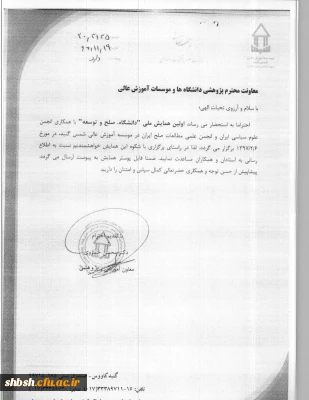 ۲۰,۲۱۲۵
۹۶,۱۱,۱۹
دارد
معاونت محترم پژوهشی دانشگاه ها و موسسات آموزش عالی
با سلام و آرزوی تحیات الهی؛
احتراما به استحضار می رساند اولین همایش ملی "دانشگاه، صلح و توسعه" با همکاری انجمن
علوم سیاسی ایران و انجمن علمی مطالعات صلح ایران در موسسه آموزش عالی شمس گنبد، در مورخ
۱۳۹۷/۲/۶ برگزار می گردد، لذا در راستای برگزاری با شکوه این همایش خواهشمندیم نسبت به اطلاع
رسانی به استادان و همکاران مساعدت نمایید. ضمنا فایل پوستر همایش به پیوست ارسال می گردد.
پیشاپیش از حسن توجه و همکاری حضرتعالی کمال سپاس و امتنان را داریم.
با تقدیم احترام
معاون آموزشی و پژوهشی
گنبدکاووس -
تلفن: ۱۶-۳۳۳۸۹۷۱۱(۰۱۷)
shbsh.cfu.ac.ir